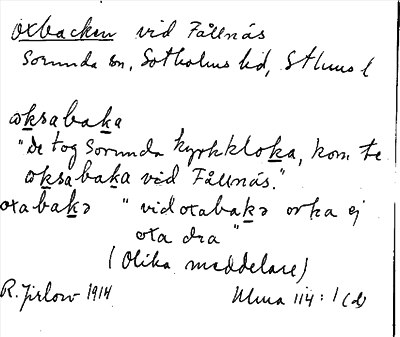 oxbacken vid Fållnäs
Sorunda sn, Sotholms hd, Sthms l
oksabaka
"De tog Sorunda kyrkkloka, kom te
oksabaka vid Fållnäs."
oxabakə "vid oxabakə orka ej
oxa dra"
(Olika meddelare)
R. Jirlow 1914 Ulma 114:1(d)